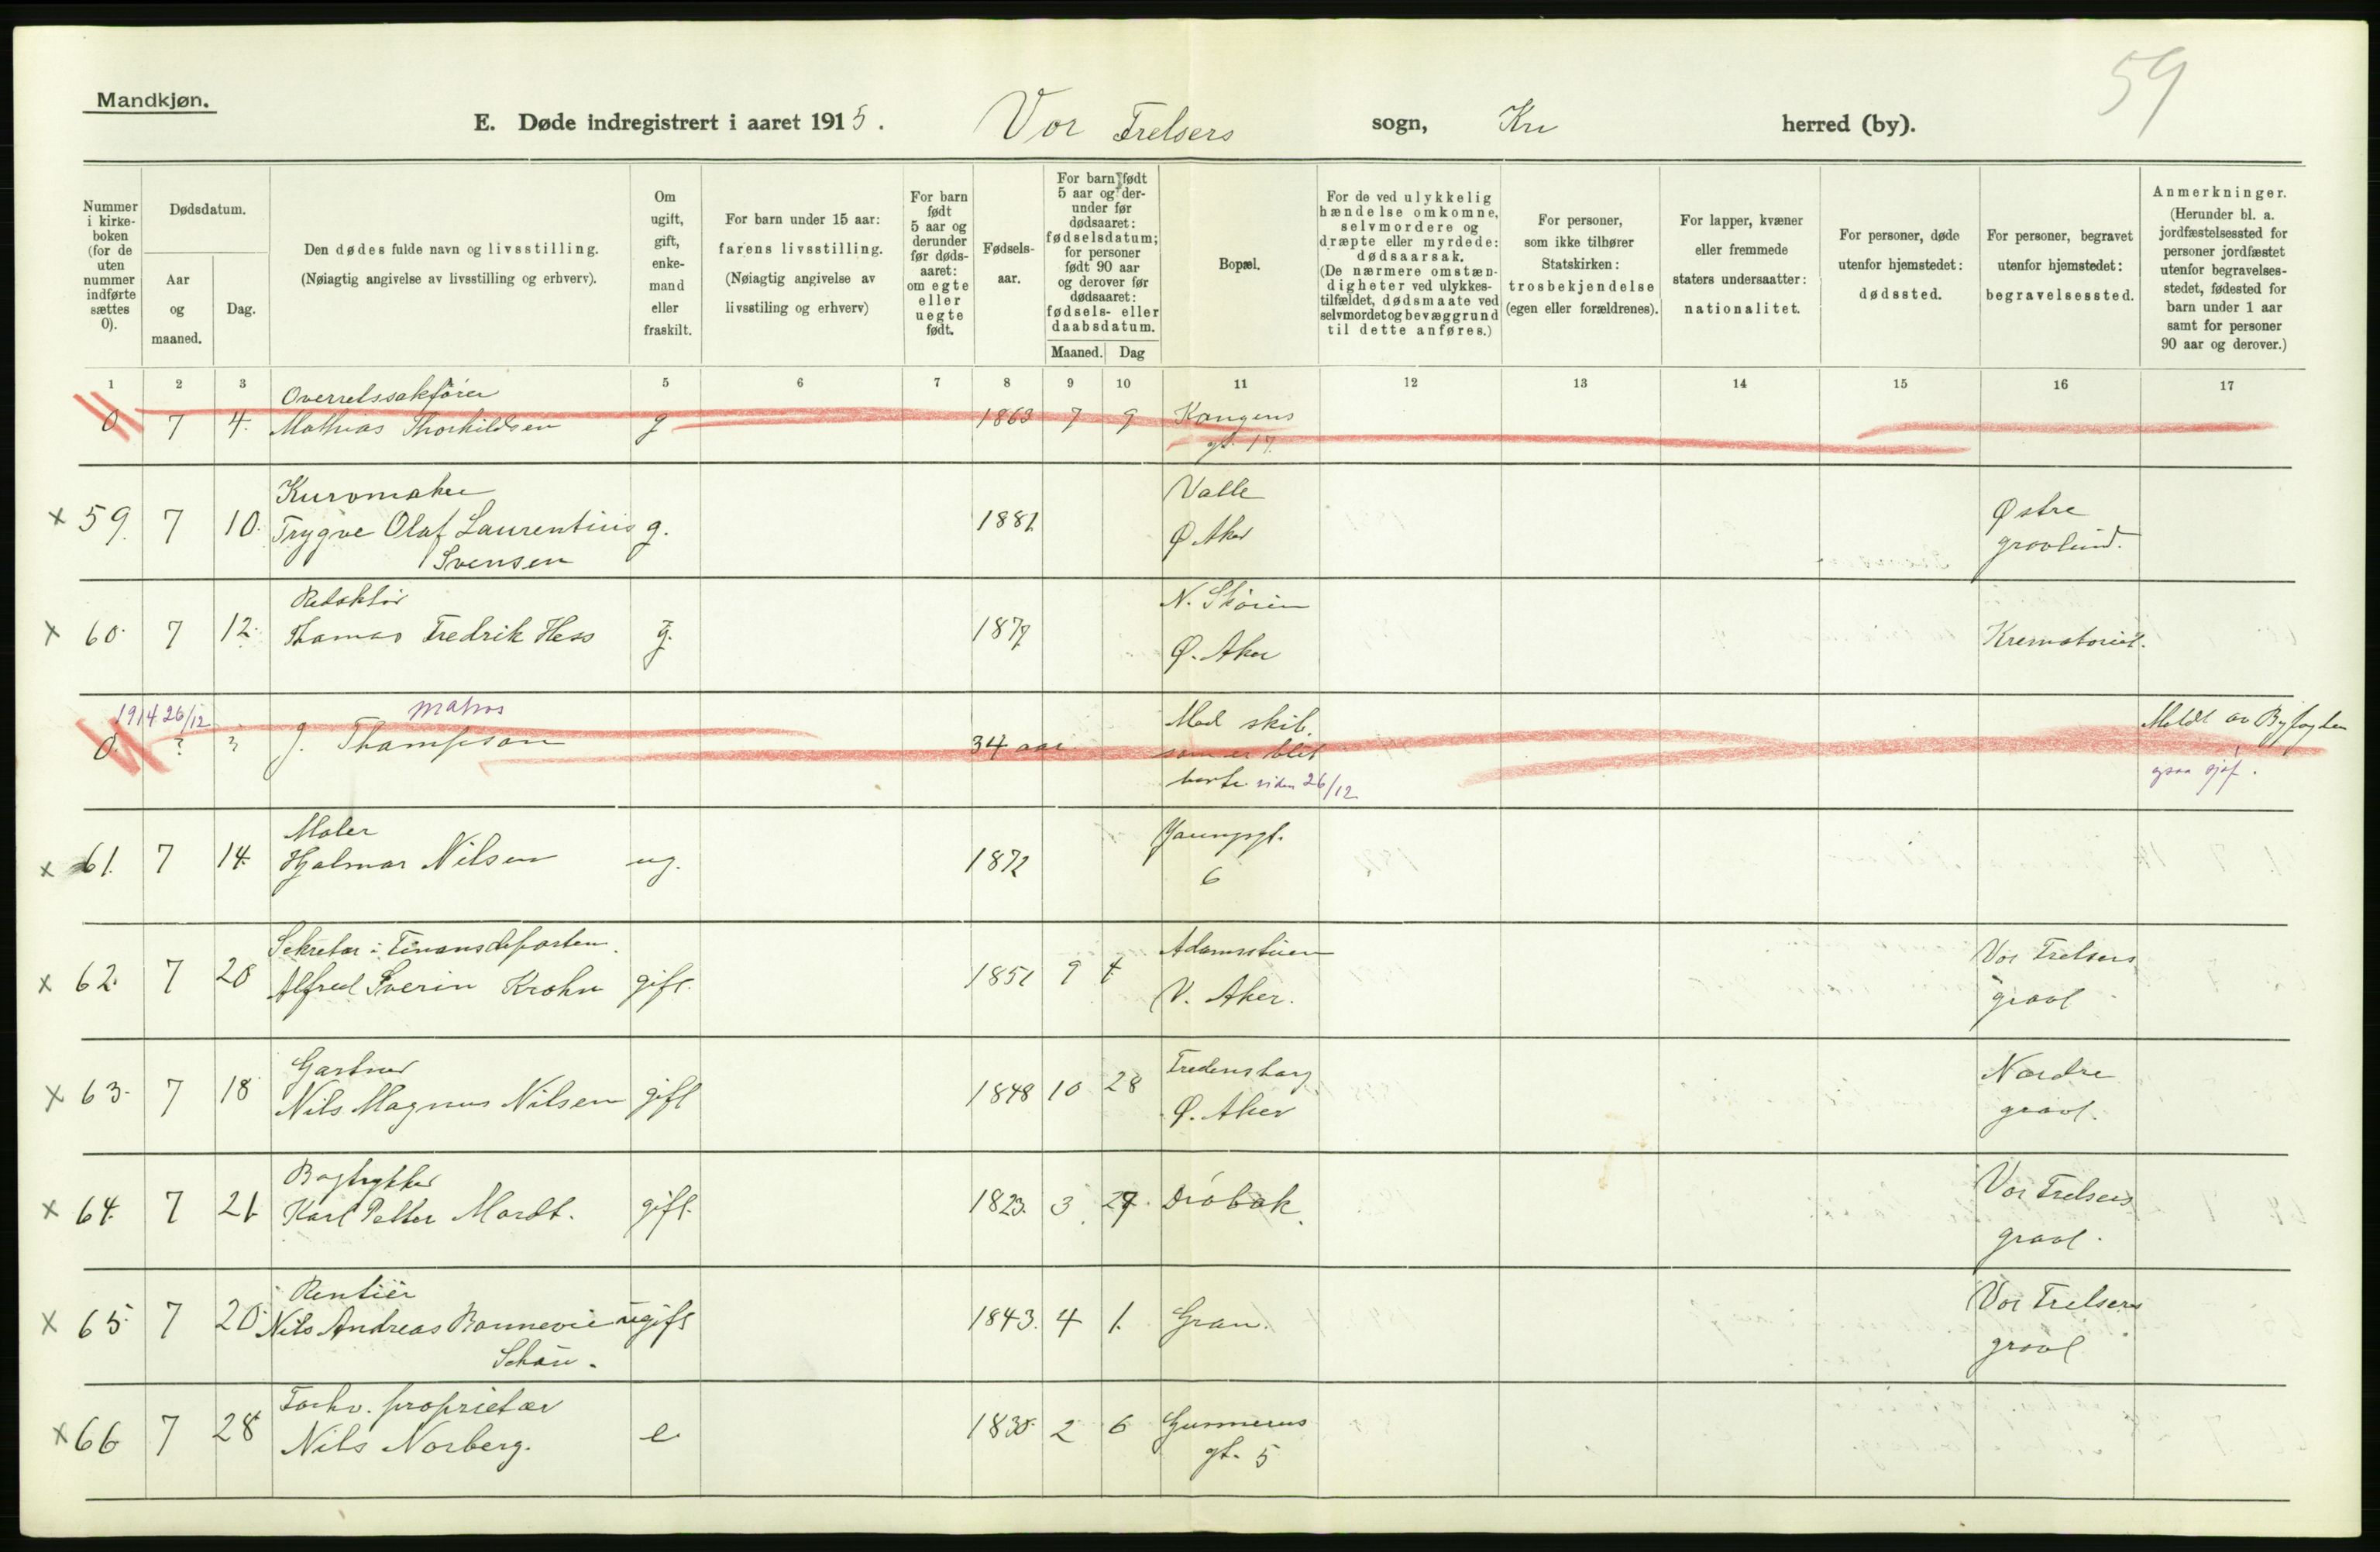 59
Mandkjøn.
E. Døde indregistrert i aaret 1915. Vor Frelsers sogn, Kra herred (by).
Nummer i kirkeboken (for de uten nummer indførte sættes 0).
Dødsdatum.
Aar og maaned.
Dag.
Den dødes fulde navn og livsstilling.
(Nøiagtig angivelse av livsstilling og erhverv).
Om ugift, gift, enkemand eller fraskilt.
For barn under 15 aar:
farens livsstilling.
(Nøiagtig angivelse av livsstiling og erhverv)
For barn født 5 aar og derunder før dødsaaret: om egte eller uegte født.
Fødselsaar.
For barn født 5 aar og derunder før dødsaaret: fødselsdatum; for personer født 90 aar og derover før dødsaaret: fødsels- eller daabsdatum.
Maaned. Dag
Bopæl.
For de ved ulykkelig hændelse omkomne, selvmordere og dræpte eller myrdede: dødsaarsak.
(De nærmere omstændigheter ved ulykkestilfældet, dødsmaate ved selvmordet og bevæggrund til dette anføres.)
For personer, som ikke tilhører Statskirken: trosbekjendelse (egen eller forældrenes).
For lapper, kvæner eller fremmede staters undersaatter: nationalitet.
For personer, døde utenfor hjemstedet: dødssted.
For personer, begravet utenfor hjemstedet: begravelsessted.
Anmerkninger.
(Herunder bl. a. jordfæstelsessted for personer jordfæstet utenfor begravelsesstedet, fødested for barn under 1 aar samt for personer 90 aar og derover.)
1 2 3 5 6 7 8 9 10 11 12 13 14 15 16 17
Overretssakfører
0 7 4. Mathias Thorkildsen g 1863 7 9 Kongens
gt. 17.
Kurvmaker Valle
x 59. 7 10. Trygve Olaf Laurentius g. 1881 Ø. Aker Østre
Svensen gravlund.
Redaktør N. Skøien
x 60. 7 12. Thomas Fredrik Hess g. 1877 Ø. Aker Krematoriet.
1914 26/12 matros Med skib. Meldt av Byfogden
0. ? ? J. Thompson 34 aar som er blit
borte siden 26/12
Maler Youngsgt.
x 61. 7 14. Hjalmar Nilsen ug. 1872 6
Sekretær i Finansdeparten. Adamstuen Vor Frelsers
x 62. 7 20 Alfred Sverin Krohn gift. 1851 9 4 V. Aker. gravl
Gartner Fredensborg Nordre
x 63. 7 18 Nils Magnus Nilsen gift 1848 10 28 Ø. Aker gravl.
Bogtrykker Vor Frelsers
x 64. 7 21 Karl Petter Mordt. gift. 1823. 3 27. Drøbak. gravl.
Rentier Vor Frelsers
x 65. 7 20. Nils Andreas Bonnevie ugift 1843. 4 1. Gran. gravl
Schøn.
Forhv. proprietær
x 66 7 28 Nils Norberg. e 1830. 2 6 Gunnerus
gt. 5